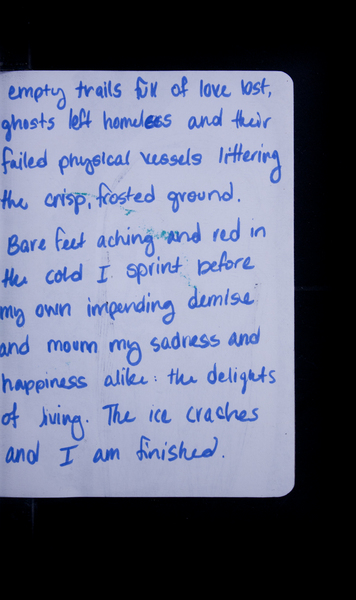 empty trails full of love lost,
ghosts left homeless and their
failed physical vessels littering
the crisp, frosted ground.
Bare feet aching and red in
the cold I sprint before
my own impending demise
and mourn my sadness and
happiness alike: the delights
of living. The ice craches
and I am finished.